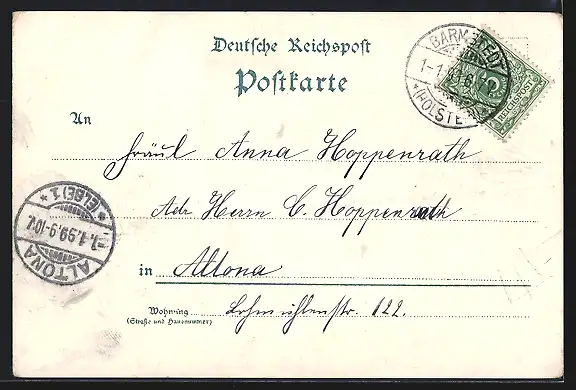 Deutsche Reichspost
Postkarte
BARMSTEDT
1-1
(HOLSTEIN)
5
REICHSPOST
An
Fräul Anna Hoppenrath
Adr Herrn C. Hoppenrath
in Altona
Wohnung Lohmühlenstr. 122.
(Straße und Hausnummer)
ALTONA
1.1.99.9-10V.
*(ELBE) 1*